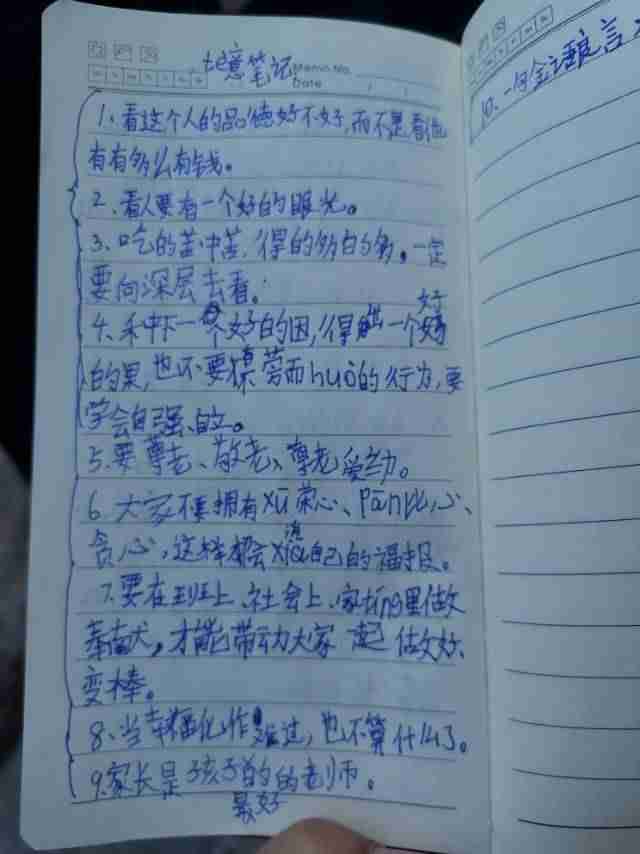 te意笔记
Memo No.
Date / /
1、看这个人的品德好不好,而不是看他
有有多么有钱。
2、看人要有一个好的眼光。
3、吃的苦中苦,得的多自多。一定
要向深层去看。
4、种下一个好的因,得出一个好
的果,也不要 而huò的行为,要
学会自强、自立。
5、要尊老、敬老、孝老爱幼。
6、大家不要拥有xū荣心、pān比心、
贪心,这样都会消自己的福报。
7、要在班上、社会上、家tíng里做
奉献,才能带动大家一起做好、
变棒。
8、当幸福化作难过,也不算什么了。
9、家长是孩子的最好的老师。
10、一句金语良言